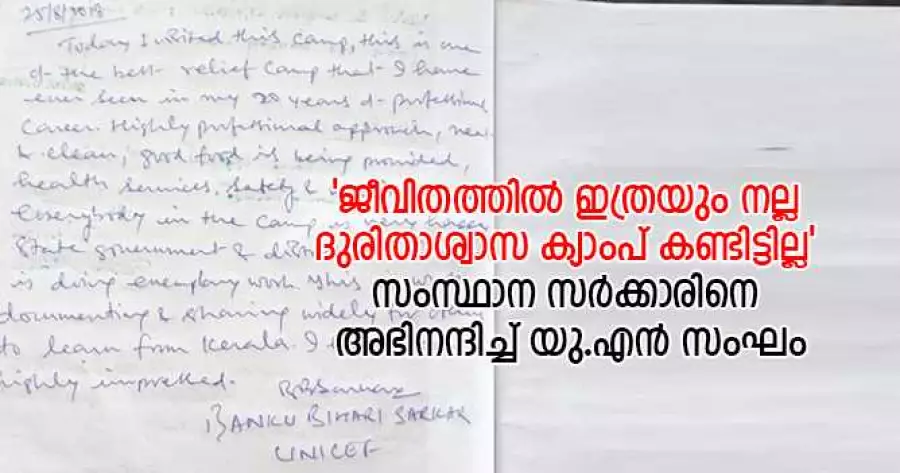 25/8/2018
Today I visited this camp, this is one
of the best relief camp that I have
ever seen in my 20 years of professional
career. Highly professional approach, neat
& clean, good food is being provided,
health services, safety &
everybody in the camp is very happy
State government &
is doing exemplary work. This is worth
documenting & sharing widely for others
to learn from Kerala. I
highly impressed.
BANKU BIHARI SARKAR
UNICEF
'ജീവിതത്തിൽ ഇത്രയും നല്ല
ദുരിതാശ്വാസ ക്യാംപ് കണ്ടിട്ടില്ല'
സംസ്ഥാന സർക്കാരിനെ
അഭിനന്ദിച്ച് യു.എൻ സംഘം